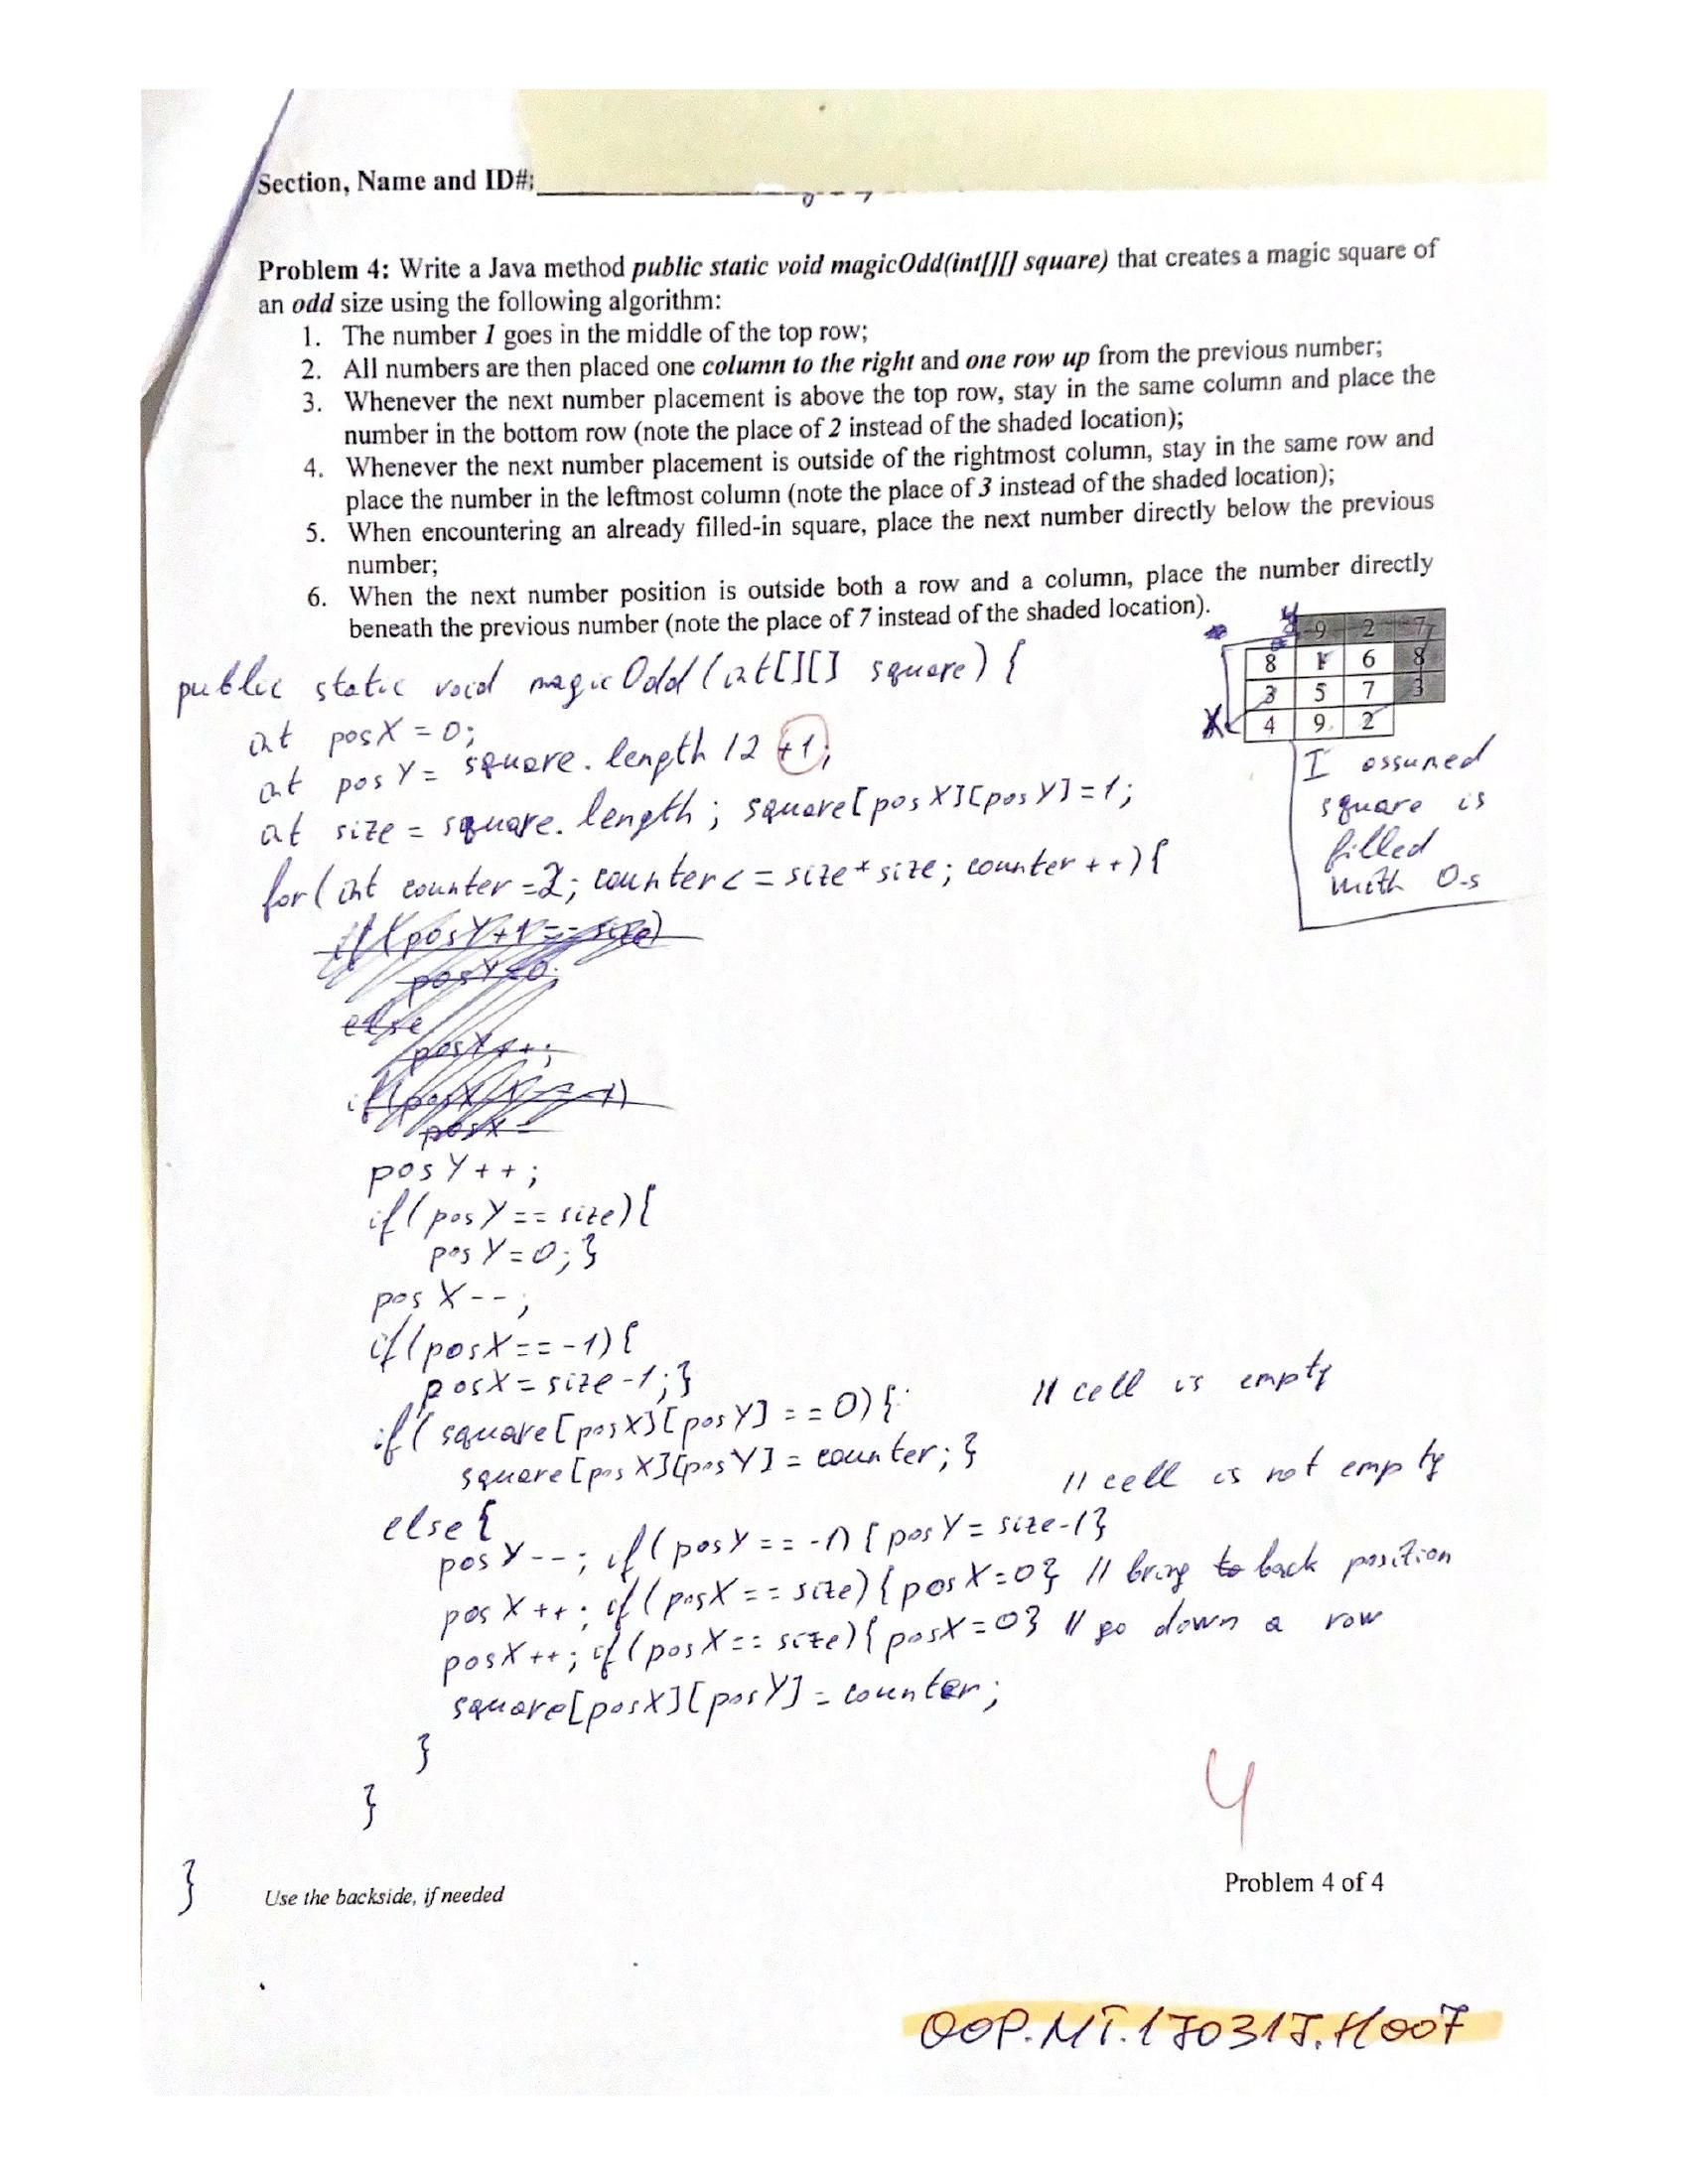 Section, Name and ID#:
Problem 4: Write a Java method public static void magicOdd(int[][] square) that creates a magic square of
an odd size using the following algorithm:
1. The number 1 goes in the middle of the top row;
2. All numbers are then placed one column to the right and one row up from the previous number;
3. Whenever the next number placement is above the top row, stay in the same column and place the
number in the bottom row (note the place of 2 instead of the shaded location);
4. Whenever the next number placement is outside of the rightmost column, stay in the same row and
place the number in the leftmost column (note the place of 3 instead of the shaded location);
5. When encountering an already filled-in square, place the next number directly below the previous
number;
6. When the next number position is outside both a row and a column, place the number directly
beneath the previous number (note the place of 7 instead of the shaded location).
y
9 2 7
8 1 6 8
3 5 7 3
X 4 9 2
I assumed
square is
filled
with 0-s
public static void magicOdd(int[][] square) {
int posX = 0;
int posY = square.length /2 +1;
int size = square.length; square[posX][posY]=1;
for(int counter=2; counter<=size*size; counter++){
if(posY+1==size)
posY=0;
else
posY++;
posX=
posY++;
if(posY==size){
posY=0;}
posX--;
if(posX==-1){
posX=size-1;}
if(square[posX][posY]==0){ // cell is empty
square[posX][posY]=counter;}
else{ // cell is not empty
posY--; if(posY==-1){posY=size-1}
posX++; if(posX==size){posX=0} // bring back position
posX++; if(posX==size){posX=0} // go down a row
square[posX][posY]=counter;
}
}
}
4
Use the backside, if needed
Problem 4 of 4
OOP.MT.170317.H007